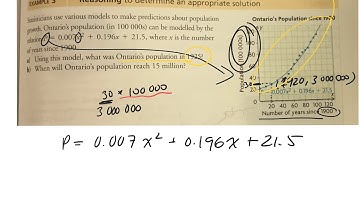 EXAMPLE 3 Reasoning to determine an appropriate solution
Statisticians use various models to make predictions about population
growth. Ontario's population (in 100 000s) can be modelled by the
equation P = 0.007x² + 0.196x + 21.5, where x is the number
of years since 1900.
a) Using this model, what was Ontario's population in 1925?
b) When will Ontario's population reach 15 million?
30 * 100 000
3 000 000
Ontario's Population (since 1900)
Population (100 000s)
(1920, 3 000 000)
0.007x² + 0.196x + 21.5
20 40 60 80 100 120
Number of years since 1900
P = 0.007 x² + 0.196x + 21.5